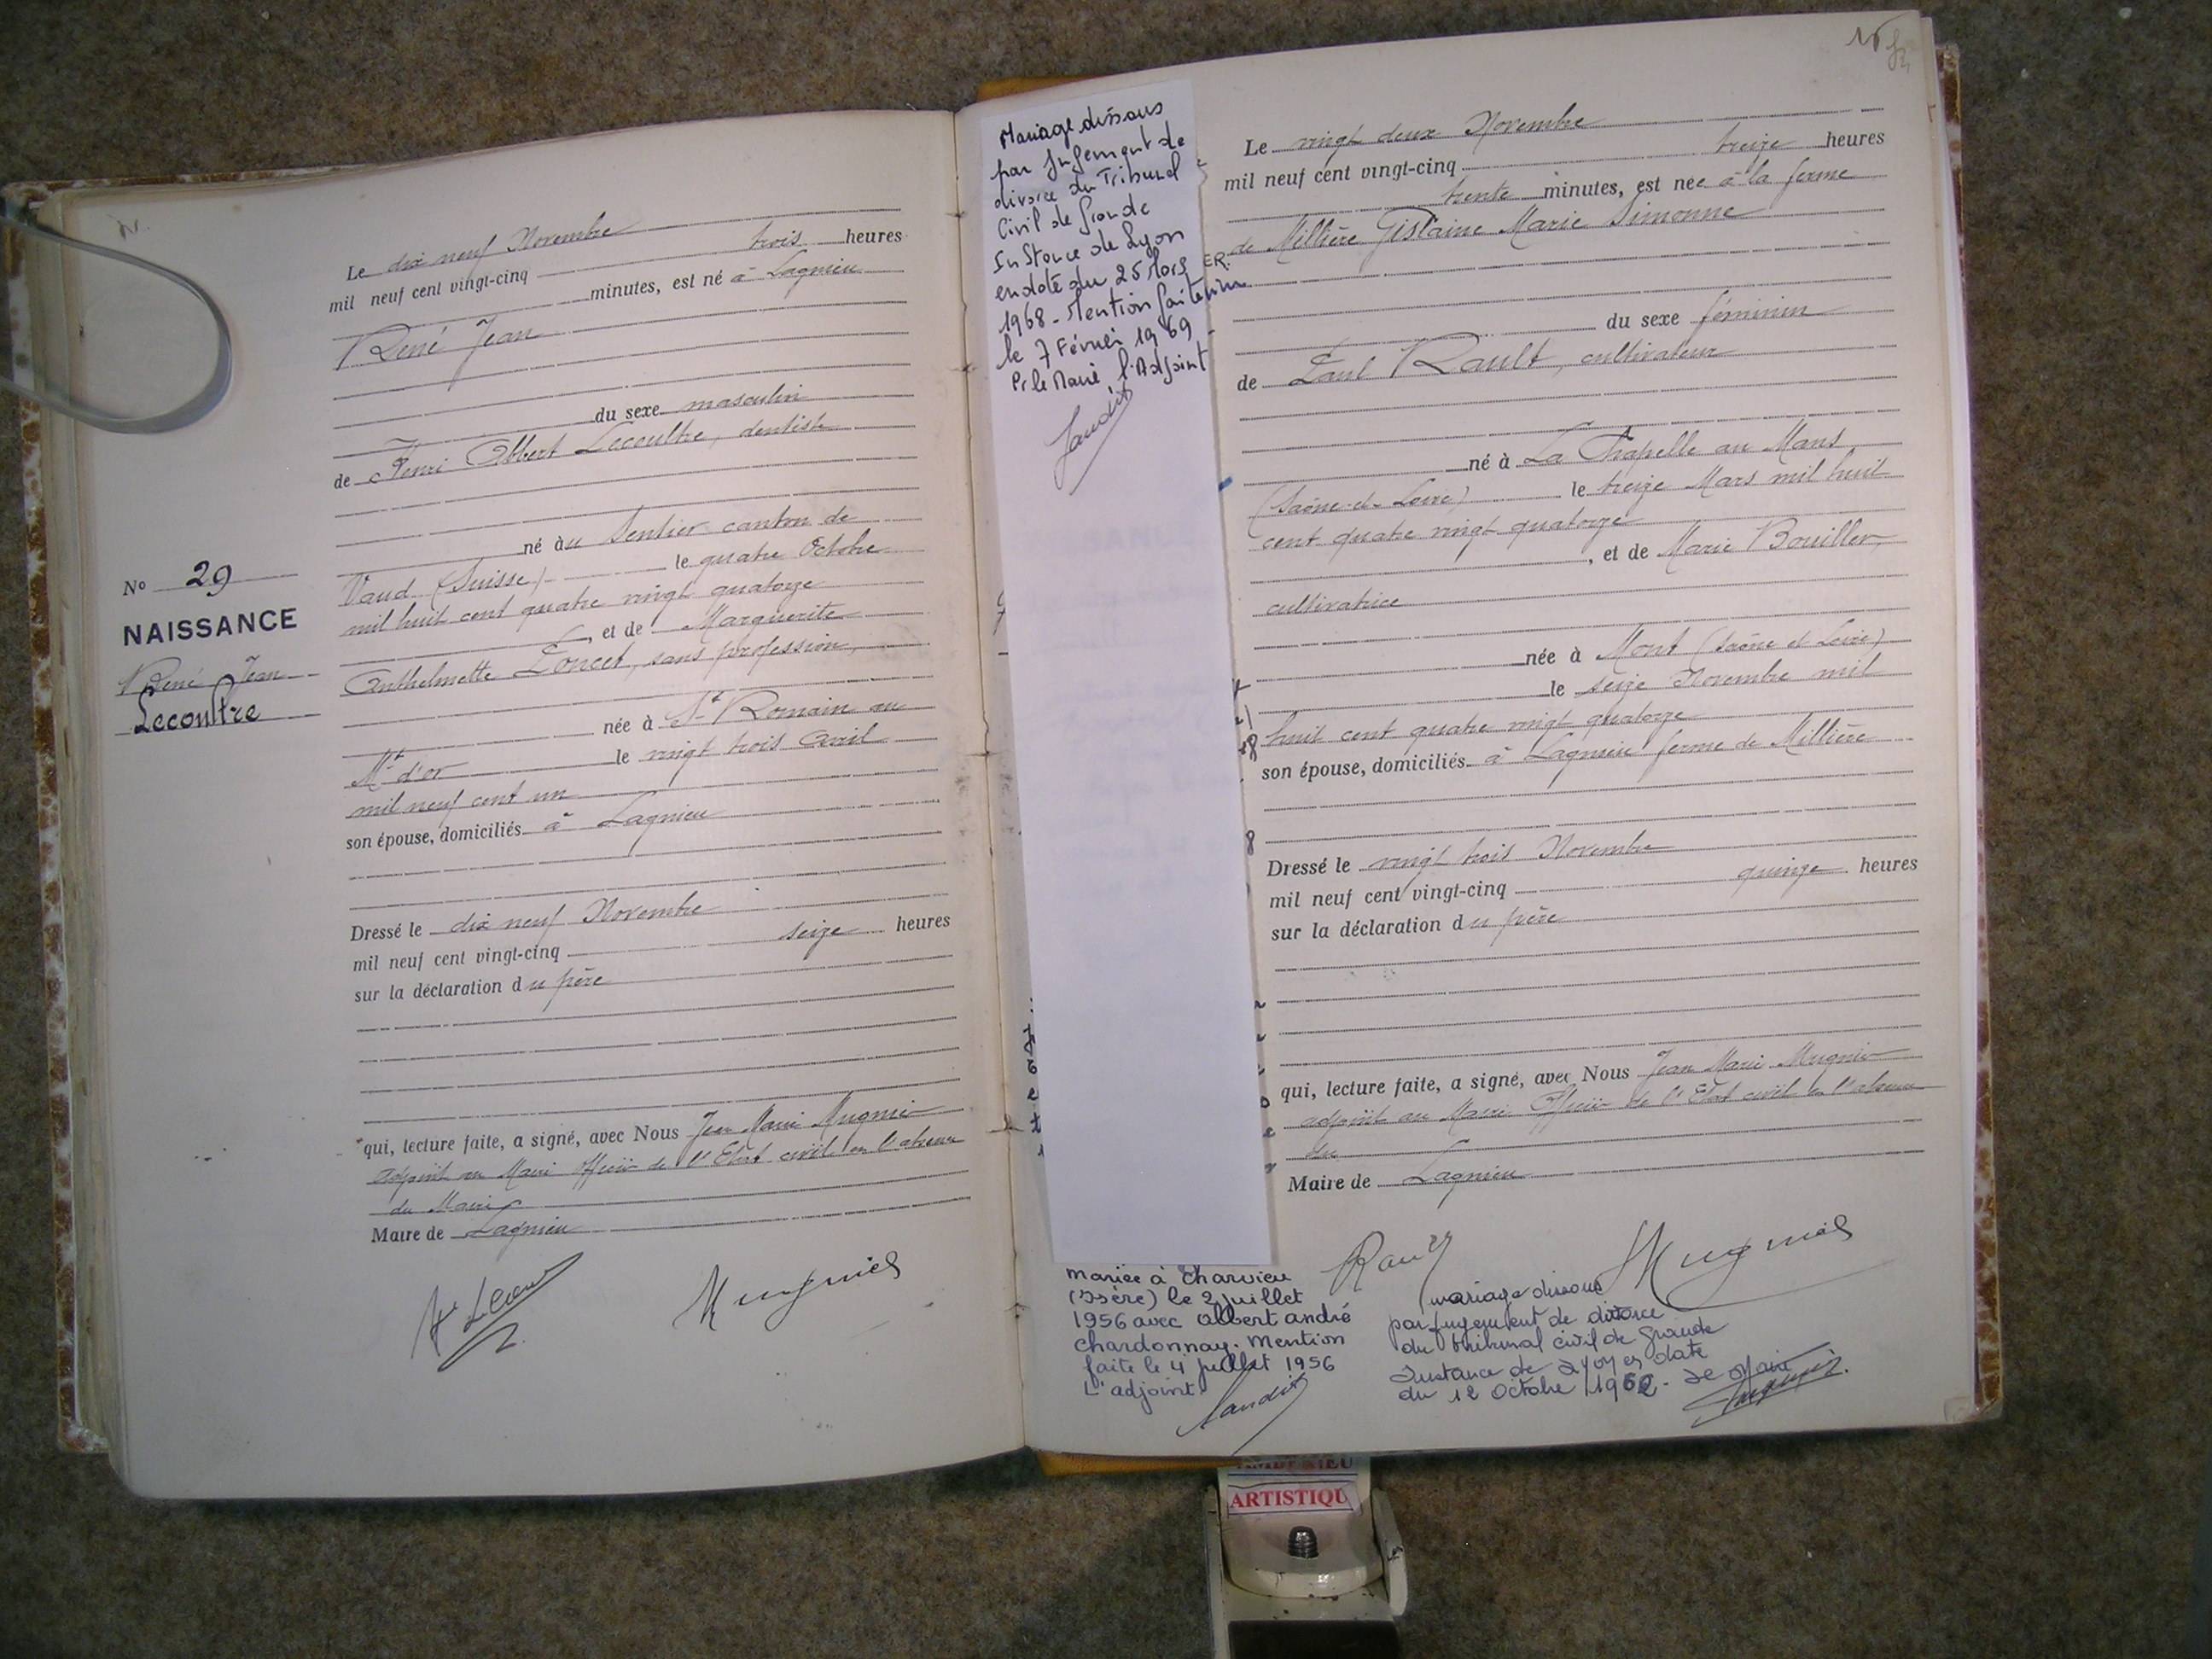 Le dix neuf Novembre
mil neuf cent vingt-cinq trois heures
minutes, est né à Lagnieu
René Jean
du sexe masculin
de Henri Albert Lecoultre, dentiste
né au Sentier canton de
Vaud (Suisse) le quatre Octobre
mil huit cent quatre vingt quatorze
, et de Marguerite
Anthelmette Poncet, sans profession,
née à St Romain au
Mt d'or le vingt trois Avril
mil neuf cent un
son épouse, domiciliés à Lagnieu
Dressé le dix neuf Novembre
mil neuf cent vingt-cinq seize heures
sur la déclaration du père
qui, lecture faite, a signé, avec Nous Jean Marie Mugnier
adjoint au Maire Officier de l'Etat civil en l'absence
du Maire
Maire de Lagnieu
Mugnier
No 29
NAISSANCE
René Jean
Lecoultre
Mariage dissous
par Jugement de
divorce du Tribunal
Civil de Grande
Instance de Lyon
en date du 25 Mars
1968 - Mention faite
le 7 Février 1969
Pr le Maire, l'Adjoint
Le vingt deux Novembre
mil neuf cent vingt-cinq treize heures
trente minutes, est née à la ferme
de Millière Gislaine Marie Simonne
du sexe féminin
de Paul Rault, cultivateur
né à La Chapelle au Mans
(Saône-et-Loire) le treize Mars mil huit
cent quatre vingt quatorze
, et de Marie Bouiller,
cultivatrice
née à Mont (Saône et Loire)
le seize Novembre mil
huit cent quatre vingt quatorze
son épouse, domiciliés à Lagnieu ferme de Millière
Dressé le vingt trois Novembre
mil neuf cent vingt-cinq quinze heures
sur la déclaration du père
qui, lecture faite, a signé, avec Nous Jean Marie Mugnier
adjoint au Maire Officier de l'Etat civil en l'absence
du
Maire de Lagnieu
Rault Mugnier
mariée à Charvieu
(Isère) le 2 juillet
1956 avec Albert andré
Chardonnay. Mention
faite le 4 juillet 1956
L'adjoint
mariage dissous
par jugement de divorce
du tribunal civil de Grande
Instance de Lyon en date
du 12 Octobre 1962 - Le Maire
ARTISTIQU